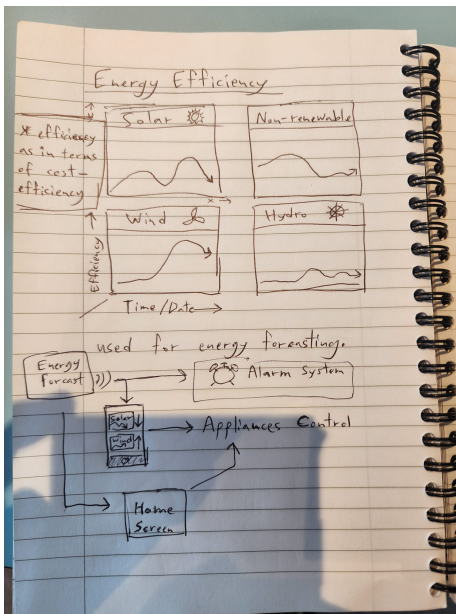 Energy Efficiency
Solar
Non-renewable
* efficiency
as in terms
of cost-
efficiency
x →
Wind
Hydro
Efficiency
Time/Date →
used for energy forcasting.
Energy
Forcast
Alarm System
Solar
Wind
Appliances Control
Home
Screen